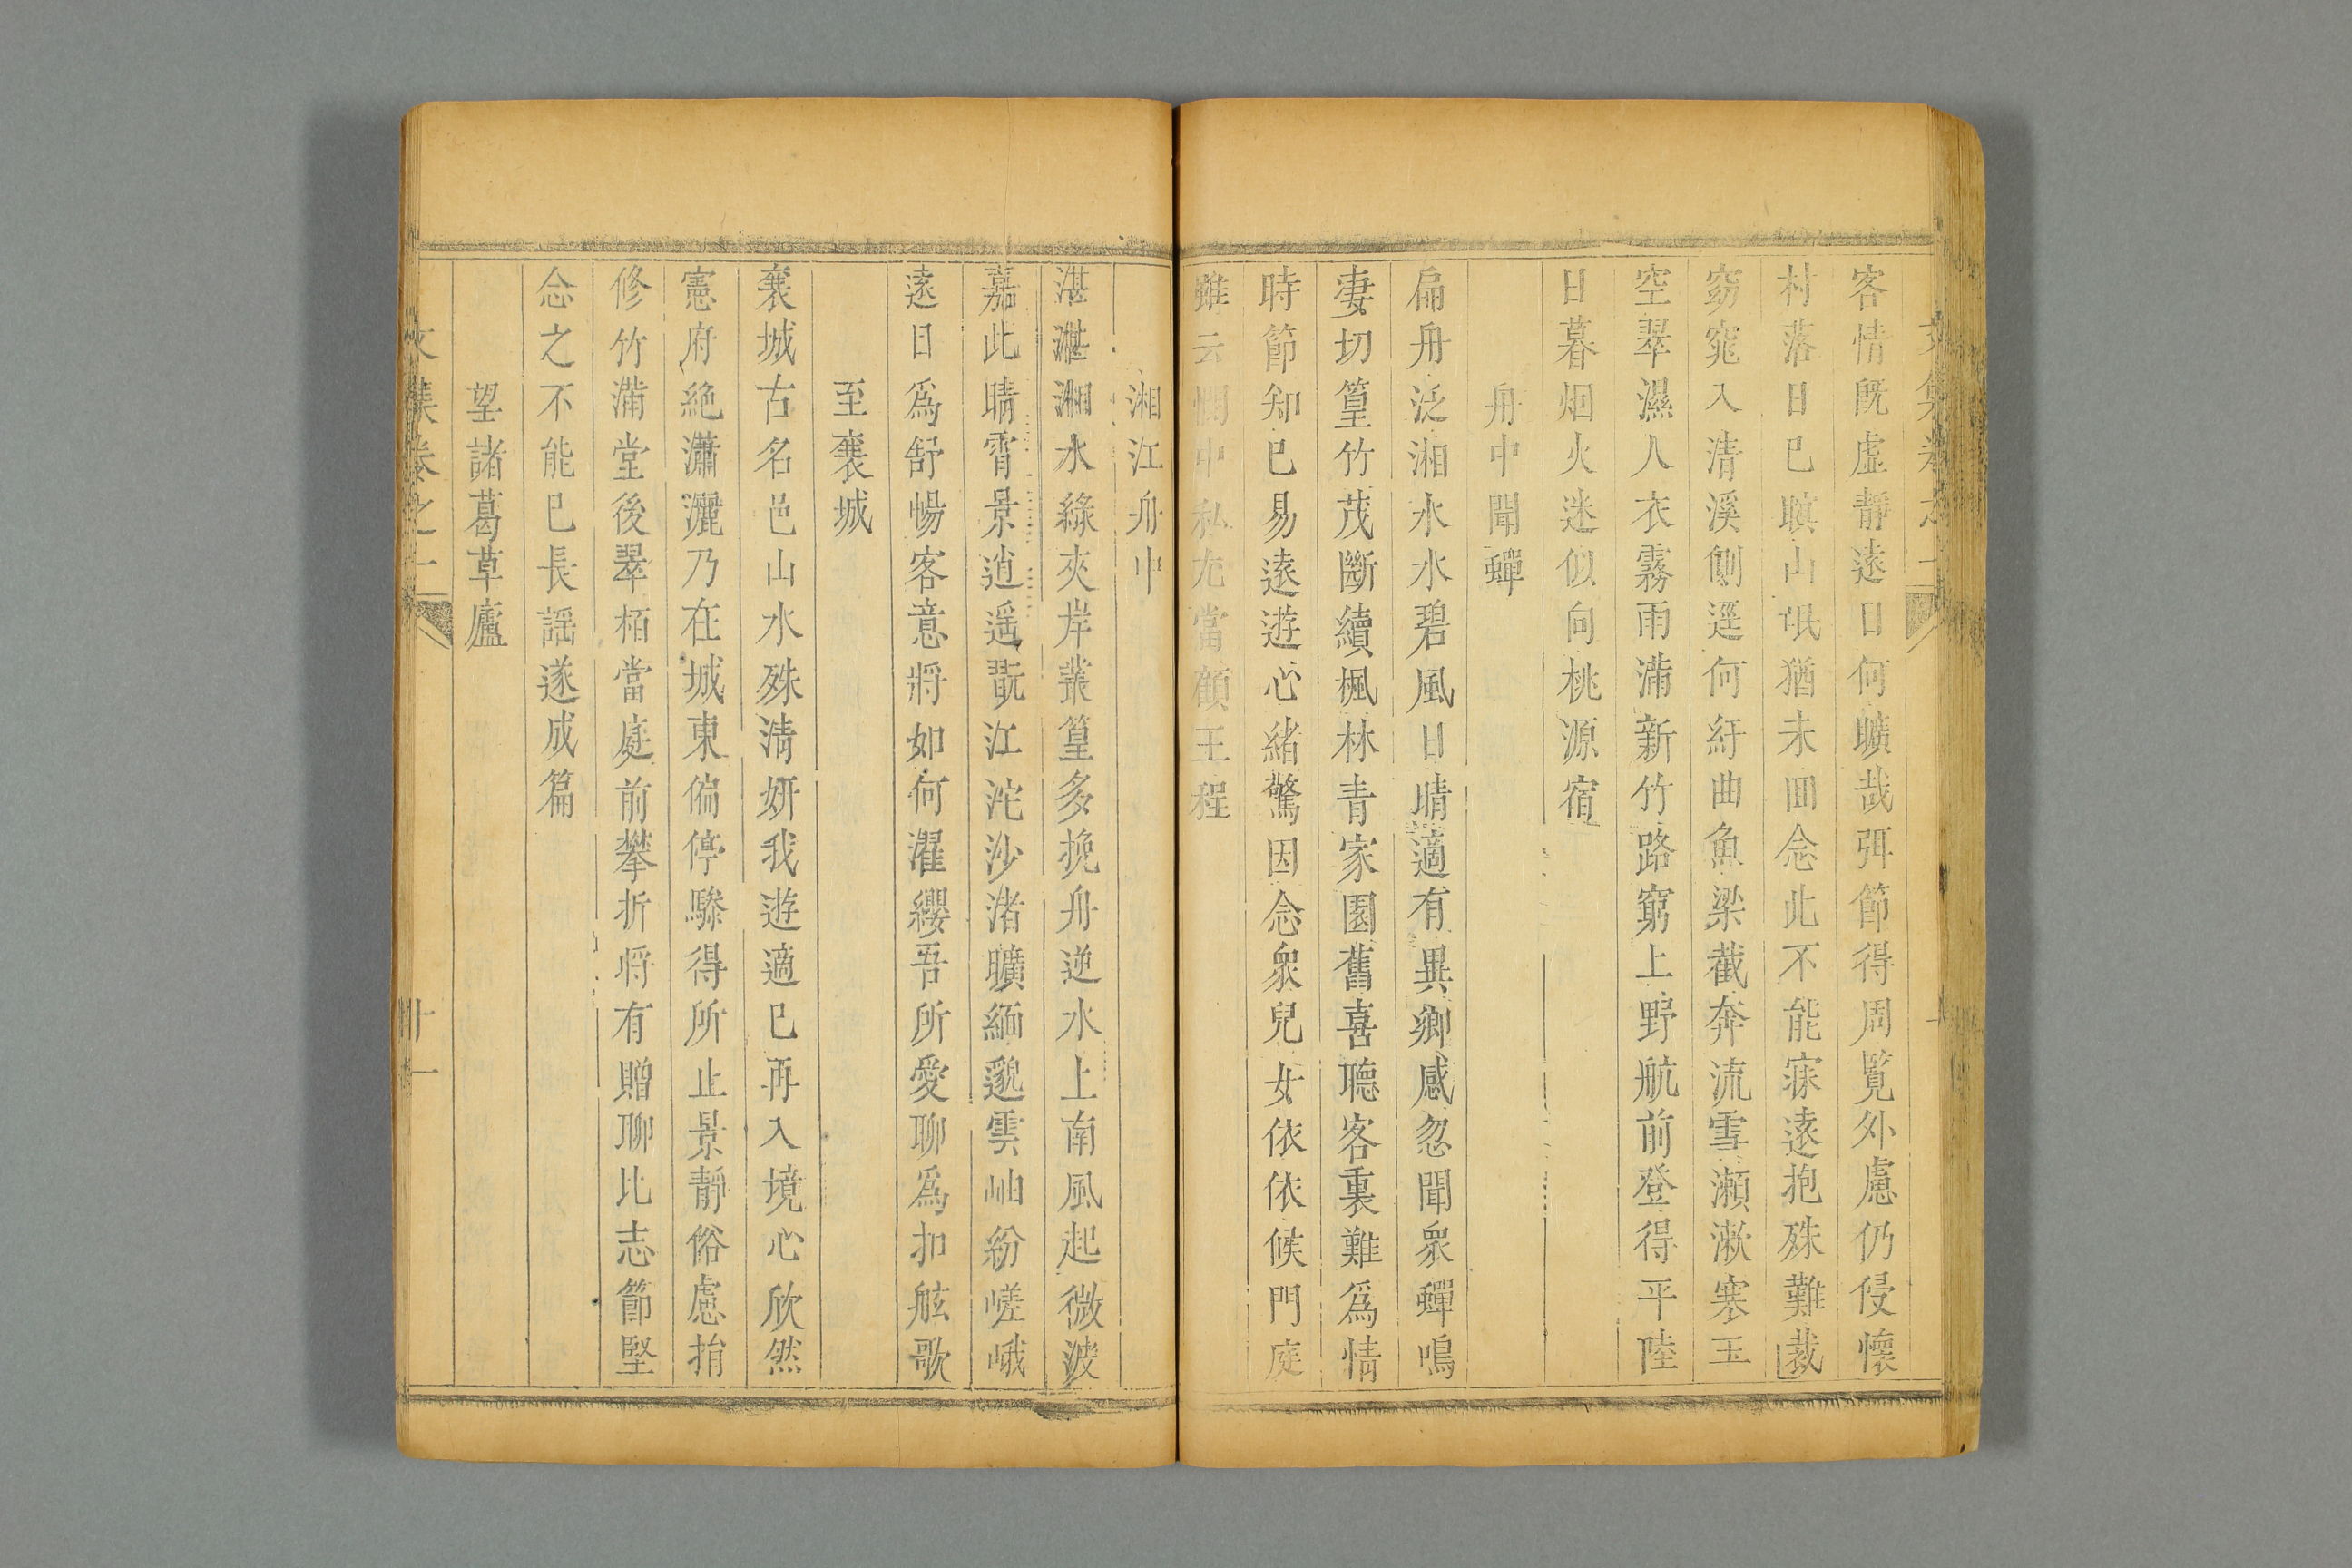 客情旣虛靜遠日何曠哉弭節得周覧外慮仍侵懷
村落日巳瞋山氓猶未囬念此不能寐遠抱殊難裁
窈窕入清溪側逕何紆曲魚梁截奔流雪瀨漱寒玉
空翠濕人衣霧雨滿新竹路窮上野航前登得平陸
日暮烟火迷似向桃源宿
舟中聞蟬
扁舟泛湘水水碧風日晴適有異鄉感忽聞衆蟬鳴
淒切篁竹茂斷續楓林青家園舊喜聽客裏難爲情
時節知巳易遠遊心緒驚因念衆兒女依依候門庭
雖云 中私 當顧王程
湘江舟中
湛湛湘水綠夾岸叢篁多挽舟逆水上南風起微波
嘉此晴霄景逍遥翫江沱沙渚曠緬邈雲岫紛嵯峨
遠日爲舒暢客意將如何濯纓吾所愛聊爲扣舷歌
至襄城
襄城古名邑山水殊清妍我遊適巳再入境心欣然
憲府絶瀟灑乃在城東偏停驂得所止景靜俗慮捐
修竹滿堂後翠栢當庭前攀折将有贈聊比志節堅
念之不能巳長謡遂成篇
望諸葛草廬
文集卷之一
十一